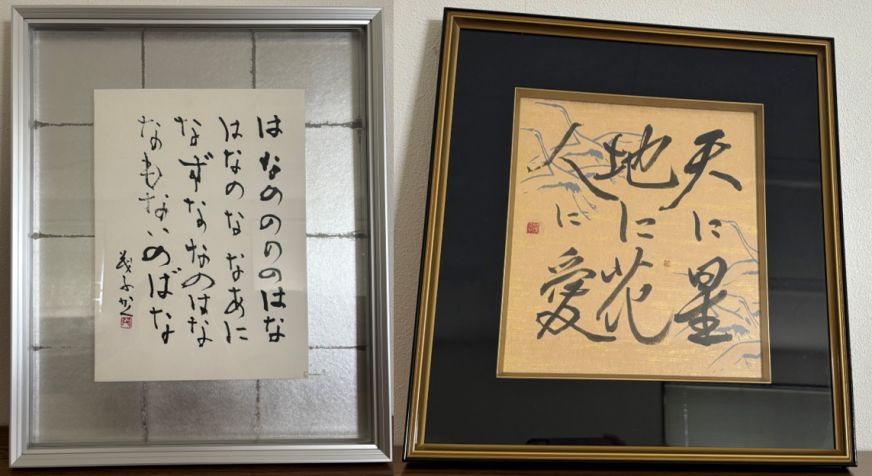 はなののののはな
はなのななあに
なずななのはな
なもないのばな
天に星
地に花
人に愛